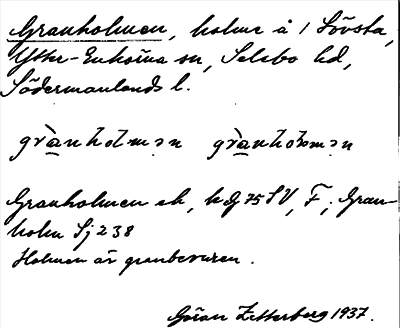 Granholmen, holme å 1 Lövsta,
Ytter-Enhörna sn, Selebo hd,
Södermanlands l.
grànholmən grànhomən
Granholmen ek, hg 75 SV, F; Gran-
holm Sj 238
Holmen är granbevuxen.
Göran Zetterberg 1937.